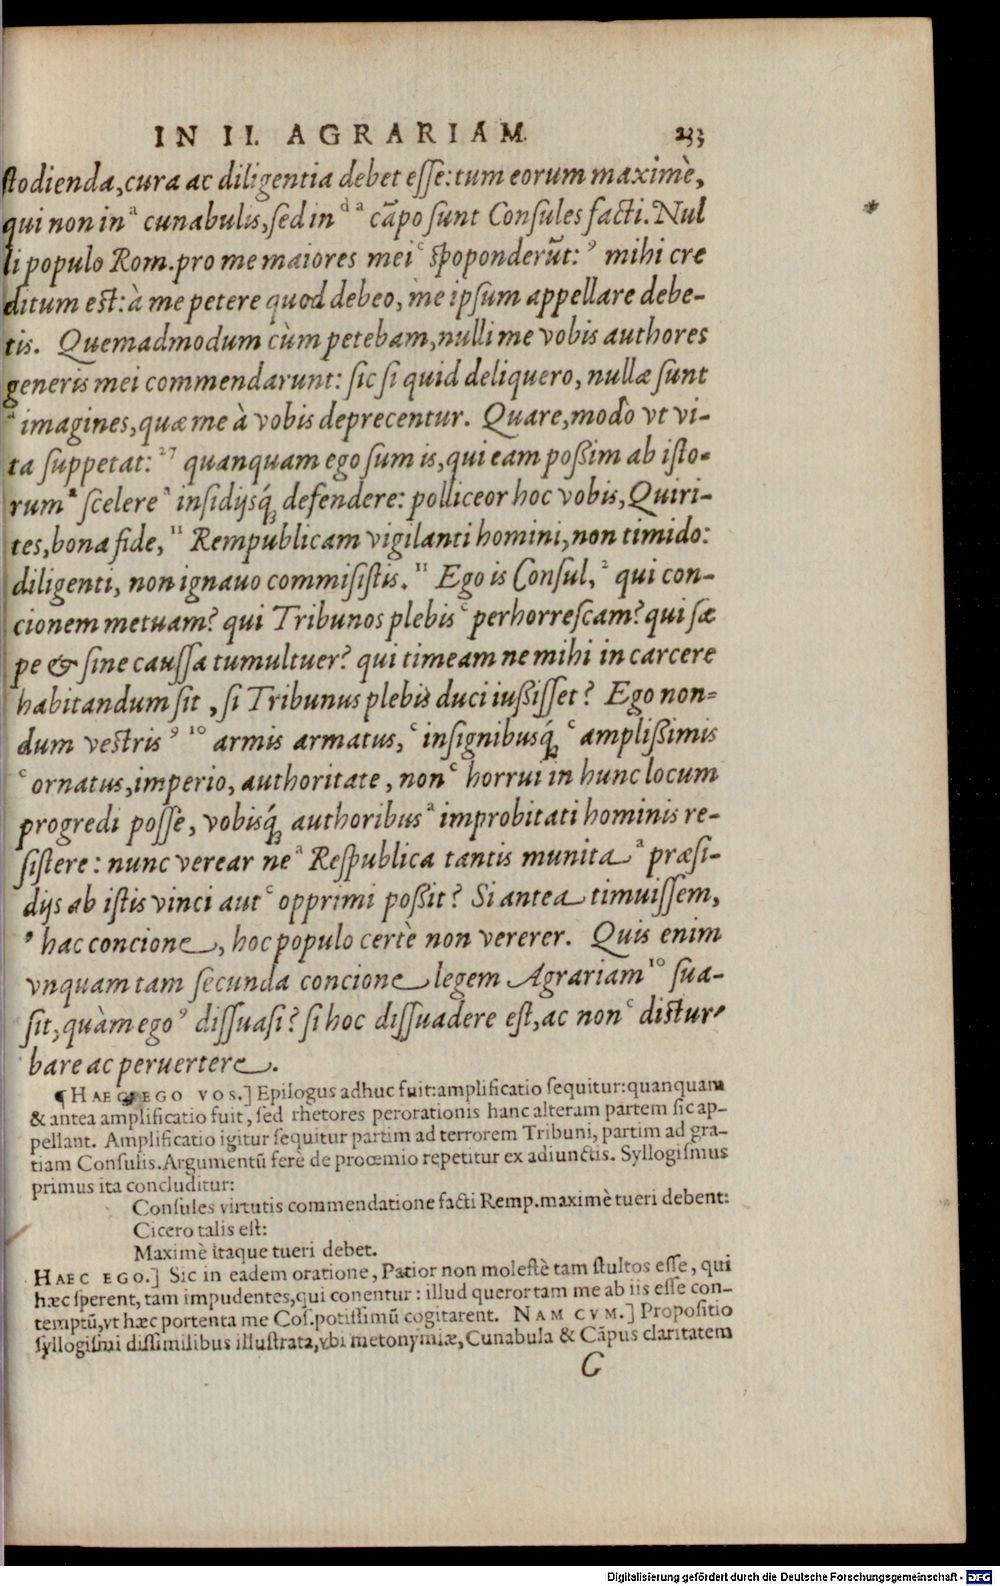 IN II. AGRARIAM. 233
ſtodienda, cura ac diligentia debet eſſe: tum eorum maximè,
qui non in ᵃ cunabulis, ſed in ᵈ ᵃ cāpo ſunt Conſules facti. Nul
li populo Rom. pro me maiores mei ᶜ ſpoponderūt: ⁹ mihi cre
ditum eſt: à me petere quod debeo, me ipſum appellare debe-
tis. Quemadmodum cùm petebam, nulli me vobis authores
generis mei commendarunt: ſic ſi quid deliquero, nullæ ſunt
ᵃ imagines, quæ me à vobis deprecentur. Quare, modò vt vi-
ta ſuppetat: ²⁷ quanquam ego ſum is, qui eam poßim ab iſto-
rum ᵃ ſcelere ᵃ inſidijsq́; defendere: polliceor hoc vobis, Quiri-
tes, bona fide, ¹¹ Rempublicam vigilanti homini, non timido:
diligenti, non ignauo commiſiſtis. ¹¹ Ego is Conſul, ² qui con-
cionem metuam? qui Tribunos plebis ᶜ perhorreſcam? qui ſæ
pe & ſine cauſſa tumultuer? qui timeam ne mihi in carcere
habitandum ſit, ſi Tribunus plebis duci iußiſſet? Ego non-
dum veſtris ⁹ ¹⁰ armis armatus, ᶜ inſignibusq́; ᶜ amplißimis
ᶜ ornatus, imperio, authoritate, non ᶜ horrui in hunc locum
progredi poſſe, vobisq́; authoribus ᵃ improbitati hominis re-
ſiſtere: nunc verear ne ᵃ Reſpublica tantis munita ᵃ præſi-
dijs ab iſtis vinci aut ᶜ opprimi poßit? Si antea timuiſſem,
⁹ hac concione, hoc populo certè non vererer. Quis enim
vnquam tam ſecunda concione legem Agrariam ¹⁰ ſua-
ſit, quàm ego ⁹ diſſuaſi? ſi hoc diſſuadere eſt, ac non ᶜ diſtur-
bare ac peruertere.
¶ HAEC EGO VOS.] Epilogus adhuc fuit: amplificatio ſequitur: quanquam
& antea amplificatio fuit, ſed rhetores perorationis hanc alteram partem ſic ap-
pellant. Amplificatio igitur ſequitur partim ad terrorem Tribuni, partim ad gra-
tiam Conſulis. Argumentū ferè de procœmio repetitur ex adiunctis. Syllogiſmus
primus ita concluditur:
Conſules virtutis commendatione facti Remp. maximè tueri debent:
Cicero talis eſt:
Maximè itaque tueri debet.
HAEC EGO.] Sic in eadem oratione, Patior non moleſtè tam ſtultos eſſe, qui
hæc ſperent, tam impudentes, qui conentur: illud queror tam me ab iis eſſe con-
temptū, vt hæc portenta me Coſ. potiſſimū cogitarent. NAM CVM.] Propoſitio
ſyllogiſmi diſſimilibus illuſtrata, vbi metonymiæ, Cunabula & Cāpus claritatem
G
Digitalisierung gefördert durch die Deutsche Forschungsgemeinschaft - DFG